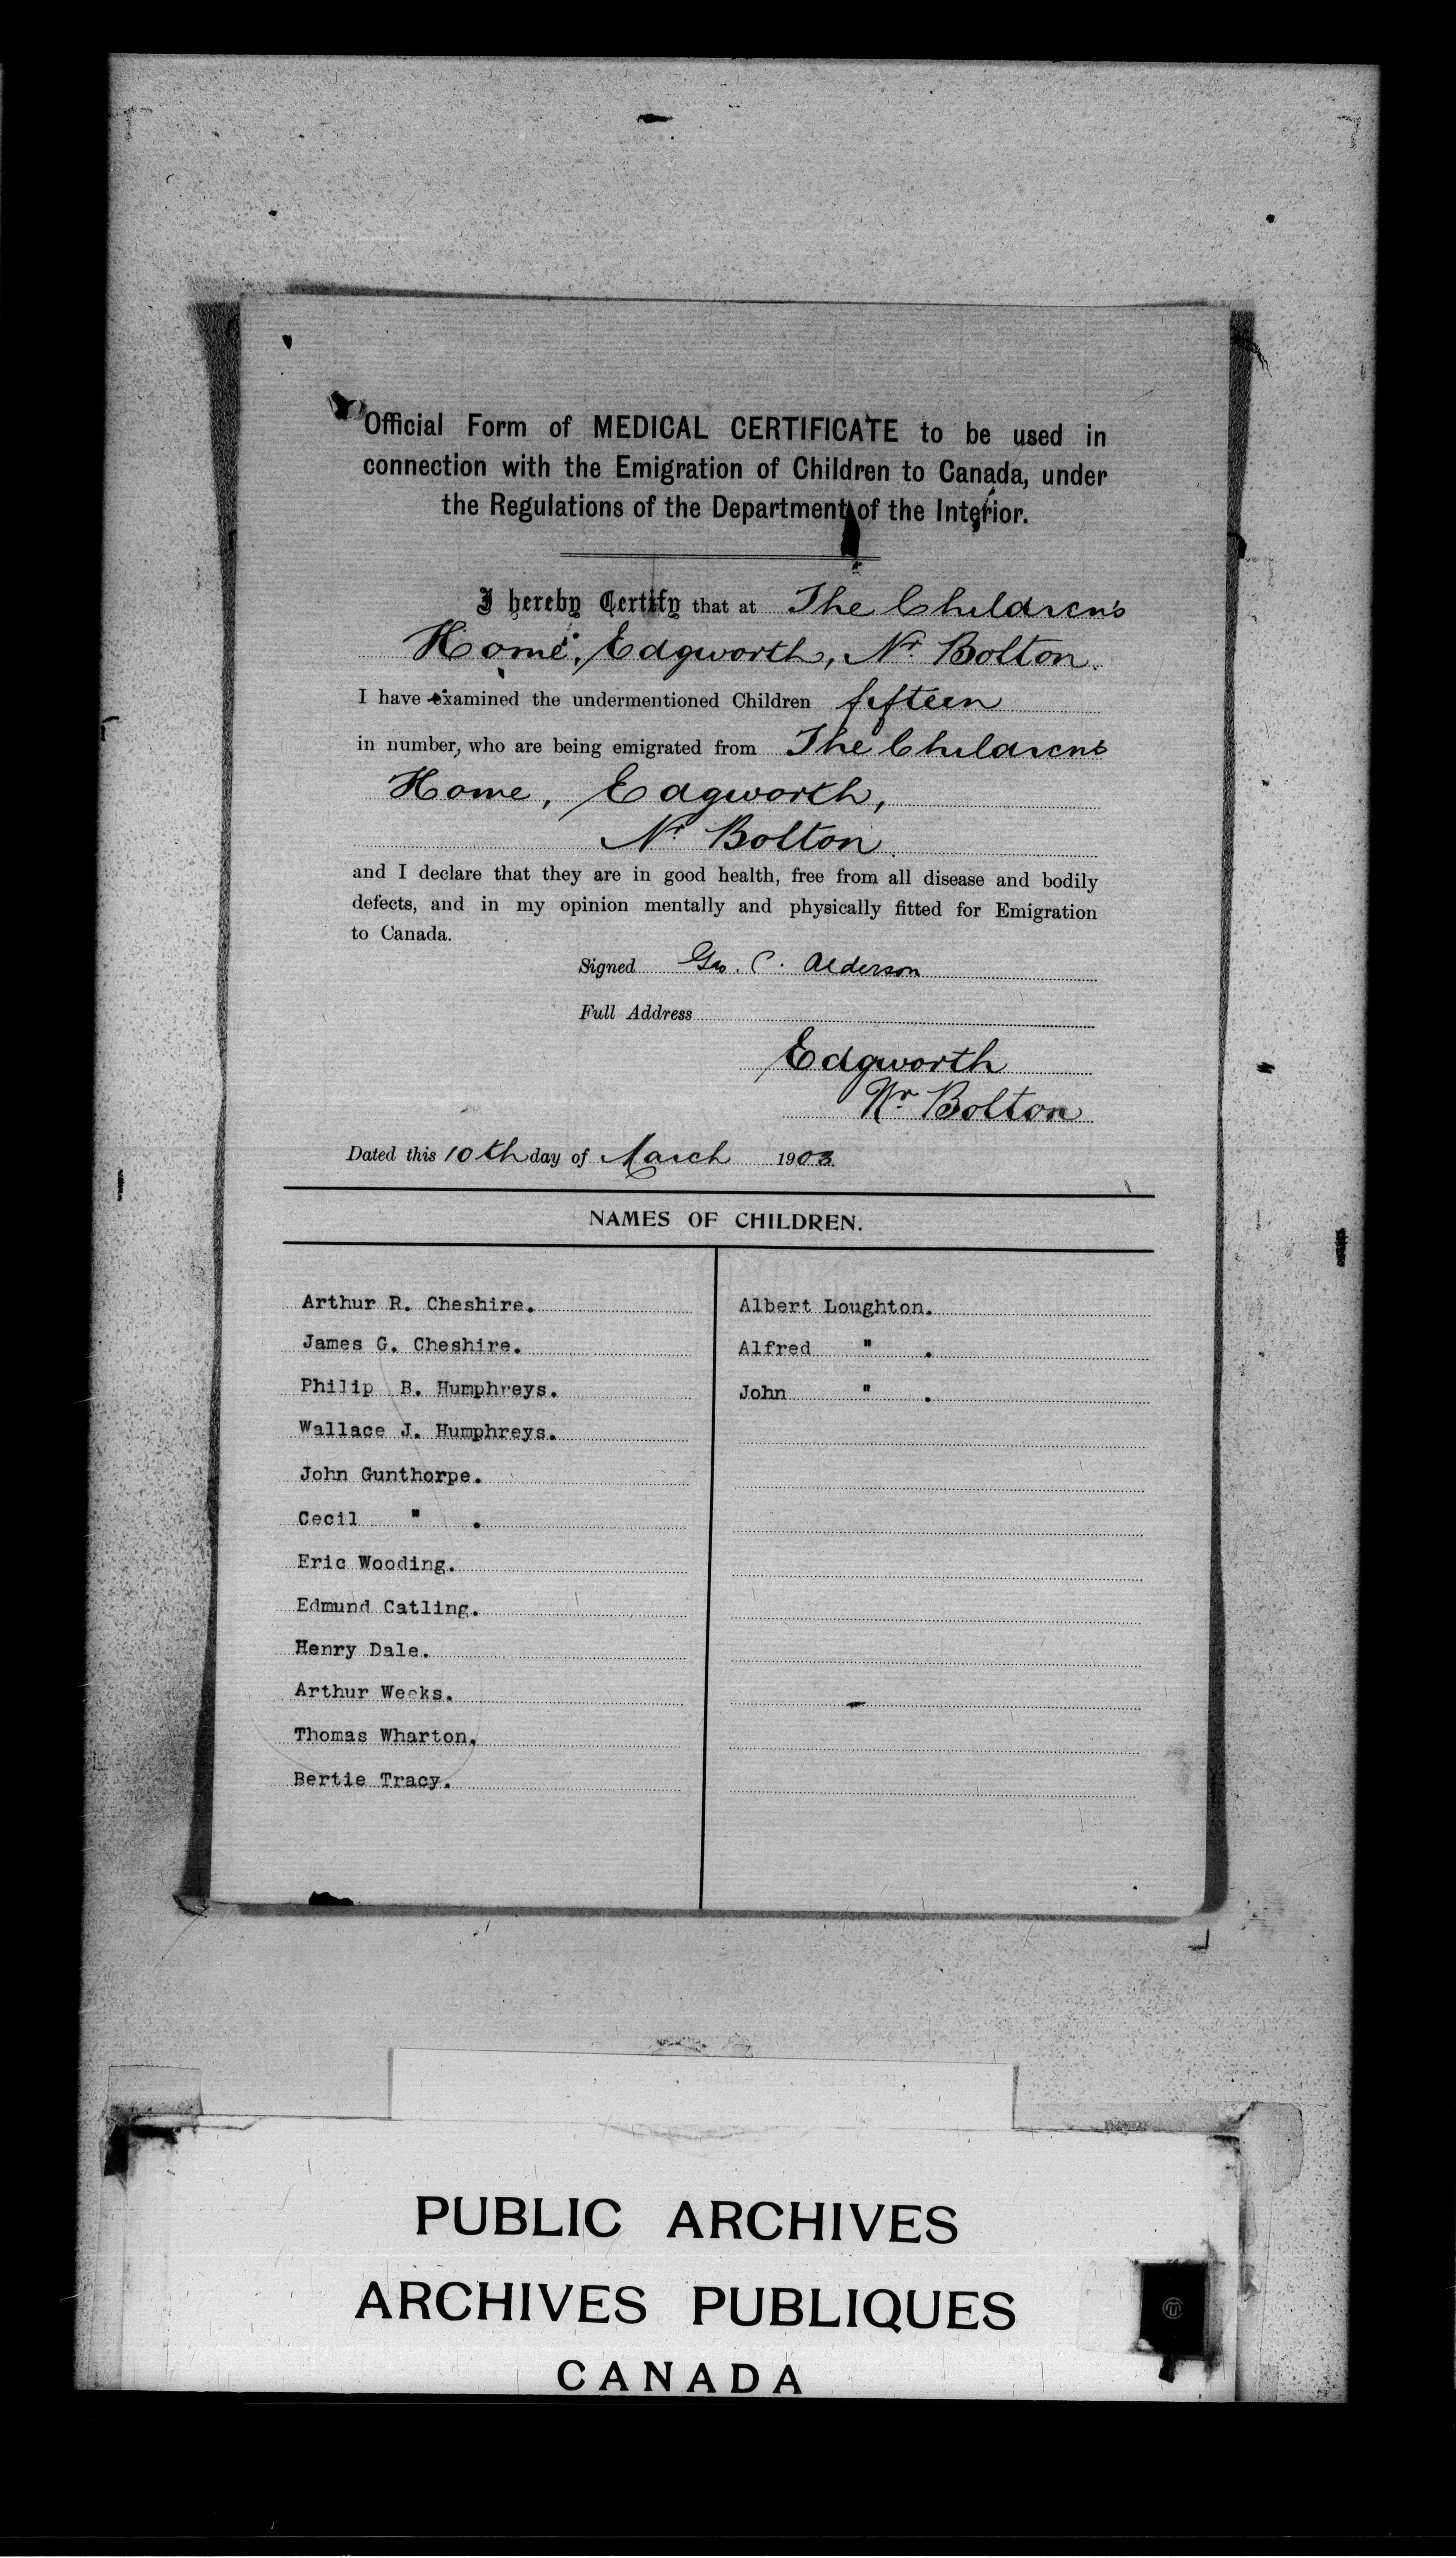 Official Form of MEDICAL CERTIFICATE to be used in
connection with the Emigration of Children to Canada, under
the Regulations of the Department of the Interior.
I hereby Certify that at The Children's
Home, Edgworth, Nr Bolton.
I have examined the undermentioned Children fifteen
in number, who are being emigrated from The Children's
Home, Edgworth,
Nr Bolton.
and I declare that they are in good health, free from all disease and bodily
defects, and in my opinion mentally and physically fitted for Emigration
to Canada.
Signed Geo. C. Alderson
Full Address
Edgworth
Nr. Bolton
Dated this 10th day of March 1903.
NAMES OF CHILDREN.
Arthur R. Cheshire.
James G. Cheshire.
Philip B. Humphreys.
Wallace J. Humphreys.
John Gunthorpe.
Cecil " .
Eric Wooding.
Edmund Catling.
Henry Dale.
Arthur Weeks.
Thomas Wharton.
Bertie Tracy.
Albert Loughton.
Alfred " .
John " .
PUBLIC ARCHIVES
ARCHIVES PUBLIQUES
CANADA